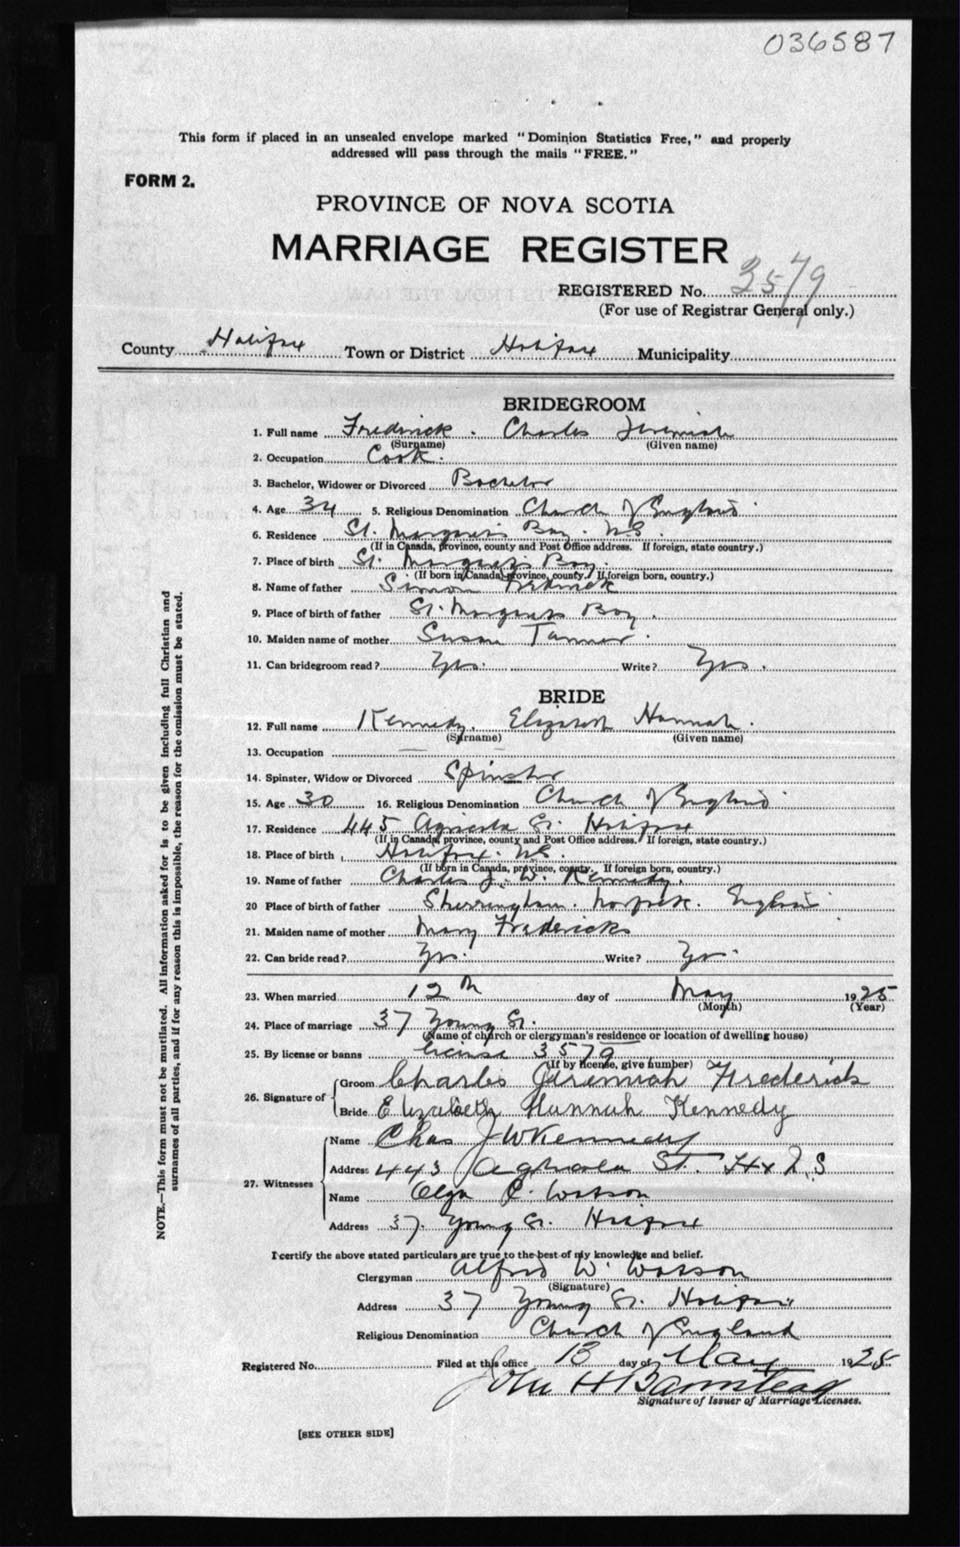 036587
This form if placed in an unsealed envelope marked "Dominion Statistics Free," and properly
addressed will pass through the mails "FREE."
FORM 2.
PROVINCE OF NOVA SCOTIA
MARRIAGE REGISTER
REGISTERED No. 3579
(For use of Registrar General only.)
County Halifax Town or District Halifax Municipality
BRIDEGROOM
1. Full name Frederick. Charles Jeremiah
(Surname) (Given name)
2. Occupation Cook.
3. Bachelor, Widower or Divorced Bachelor
4. Age 34 5. Religious Denomination Church of England
6. Residence St. Margarets Bay N.S.
(If in Canada, province, county and Post Office address. If foreign, state country.)
7. Place of birth St. Margarets Bay.
(If born in Canada, province, county. If foreign born, country.)
8. Name of father Simon Frederick
9. Place of birth of father St. Margarets Bay.
10. Maiden name of mother Susan Tanner.
11. Can bridegroom read? Yes. Write? Yes.
BRIDE
12. Full name Kennedy. Elizabeth Hannah.
(Surname) (Given name)
13. Occupation —
14. Spinster, Widow or Divorced Spinster
15. Age 30 16. Religious Denomination Church of England
17. Residence 445 Agricola St. Halifax
(If in Canada, province, county and Post Office address. If foreign, state country.)
18. Place of birth Halifax. N.S.
(If born in Canada, province, county. If foreign born, country.)
19. Name of father Charles J. W. Kennedy.
20 Place of birth of father Sherringham. Norfolk. England
21. Maiden name of mother Mary Fredericks
22. Can bride read? Yes. Write? Yes.
23. When married 12th day of May 1925
(Month) (Year)
24. Place of marriage 37 Young St.
(Name of church or clergyman's residence or location of dwelling house)
25. By license or banns License 3579
(If by license, give number)
26. Signature of
Groom Charles Jeremiah Frederick
Bride Elizabeth Hannah Kennedy
27. Witnesses
Name Chas J W Kennedy
Address 443 Agricola St. Hx N.S
Name Olga C. Watson
Address 37. Young St. Halifax
I certify the above stated particulars are true to the best of my knowledge and belief.
Clergyman Alfred W. Watson
(Signature)
Address 37 Young St. Halifax
Religious Denomination Church of England
Registered No. Filed at this office 13 day of May 1925
John H Barnstead
Signature of Issuer of Marriage Licenses.
[SEE OTHER SIDE]
NOTE.—This form must not be mutilated. All information asked for is to be given including full Christian and
surnames of all parties, and if for any reason this is impossible, the reason for the omission must be stated.